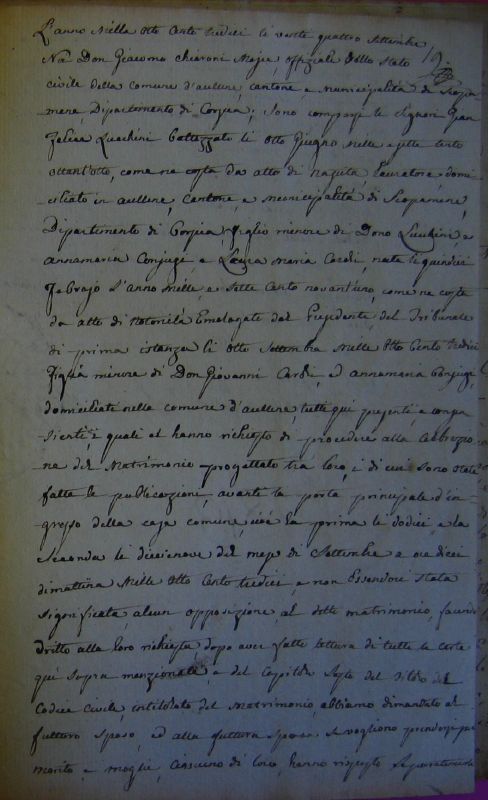 L'anno Mille Otto Cento tredici li vente quattro Settembre
Noi Don Giacomo chiaroni Maire, offiziale dello Stato
civile della comune d'aullene, cantone e municipalità di Scopa-
mene, Dipartimento di Corsica, sono comparsi li Signori Gian
Felice Lucchini battezzato li otto Giugno mille e sette cento
ottant'otto, come ne costa da atto di nascita Lavoratore domi
ciliato in aullene, Cantone, e municipalità di Scopamene,
Dipartimento di Corsica, figlio minore di Dono Lucchini, e
annamaria Conjugi e Laura Maria Cardi, nata li quindici
Febrajo L'anno Mille, e Sette Cento novant'uno, come ne costa
da atto di Notorietà Emologato dal Presidente del Tribunale
di prima istanza li Otto Settembre Mille Otto Cento tredici
Figlia minore di Don Giovanni Cardi, ed annamaria Conjugi,
domiciliati nella comune d'aullene, tutti qui presenti, e conpa
rienti, i quali ci hanno richiesto di procedere alla Celebrazio
ne del Matrimonio progettato tra loro, e di cui sono state
fatte le publicazioni, avanti la porta principale d'in-
gresso della casa comune, cioè la prima li dodici, e la
Seconda li diecienove del mese di Settembre a ore dieci
di mattina Mille Otto Cento tredici, e non Essendoci stata
significata, alcun opposizione, al detto matrimonio, facendo
dritto alla loro richiesta dopo aver fatto lettura di tutte le carte
qui sopra menzionate, e del Capitolo Sesto del Titolo del
Codice Civile, intitolato del Matrimonio, abbiamo dimandato al
futturo sposo, ed alla futtura sposa se vogliono prendersi per
marito, e moglie, ciascuno di loro, hanno risposto separatamente